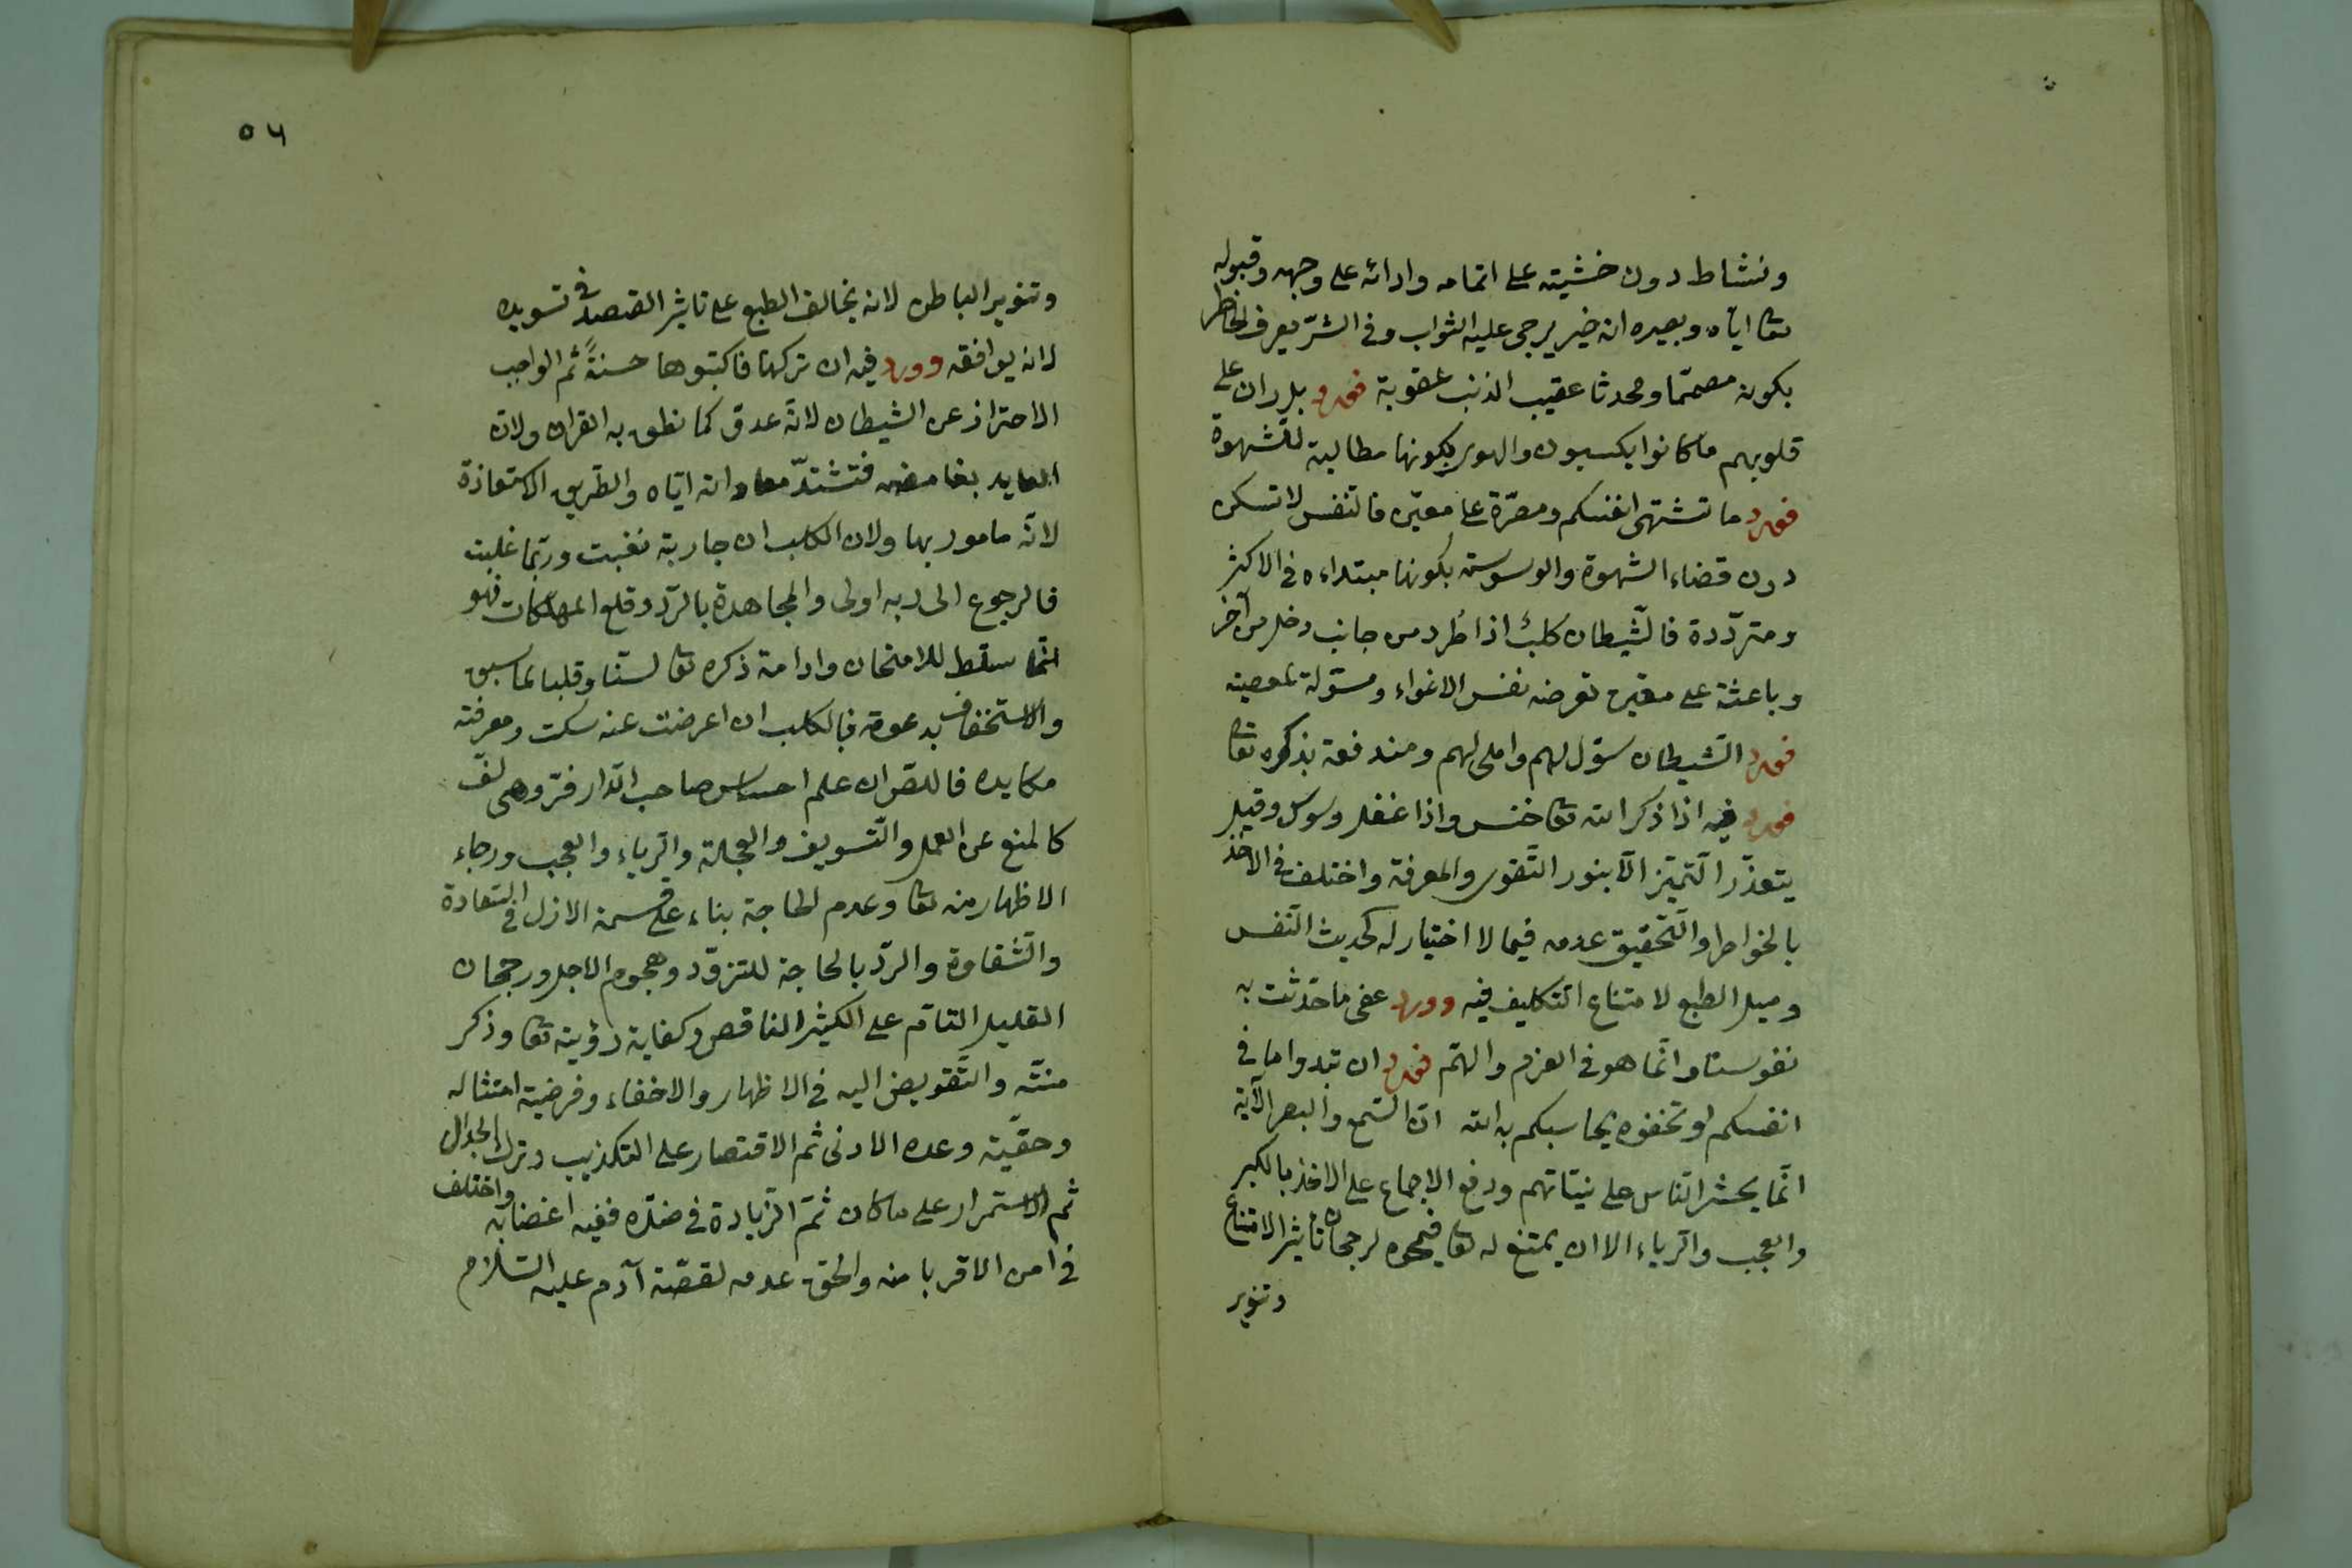 ونشاط دون خشيته على اتمامه وادائه على وجهه وقبوله
تعا اياه وبصيره انه خير يرجى عليه الثواب وفى الشرّ يعرف الخاطر
بكونه مصمّما ومحدثا عقيب الذنب عقوبة فورد بل ران على
قلوبهم ما كانوا يكسبون والهوى بكونها مطالبة للشهوة
فورد ما تشتهى انفسكم ومصرّة على معيّن فالنفس لا تسكن
دون قضاء الشهوة والوسوسة بكونها مبتداءه فى الاكثر
ومتردّدة فالشّيطان كلبٌ اذا طُرد من جانب دخل من آخر
وباعثة على معيّن لغرضه نفس الاغواء ومسوّلة لمعصية
فورد الشّيطان سوّل لهم واملى لهم ومندفعة بذكره تعا
فورد فيه اذا ذكر الله تعا خنس واذا غفل وسوس وقيل
يتعذّر التّميّز الّا بنور التّقوى والمعرفة واختلف فى الاخذ
بالخواطر والتّحقيق عدمه فيما لا اختيار له كحديث النّفس
وميل الطبع لامتناع التكليف فيه وورد عفى ما حدّثت به
نفوسنا وانّما هو فى العزم والهمّ فورد ان تبدوا ما فى
انفسكم او تخفوه يحاسبكم به الله انّ السّمع والبصر الآية
انّما يحشر النّاس على نيّاتهم ووقع الاجماع على الاخذ بالكبر
والعجب والرّياء الا ان يمتنع له تعا فيمحوه لرجحان تأثير الامتناع
وتنوير
٥٦
وتنوير الباطن لانه يخالف الطبع على تاثير القصد فى تسويده
لانه يوافقه وورد فيه ان تركها فاكتبوها حسنةً ثم الواجب
الاحتراز عن الشيطان لانّه عدوّ كما نطق به القران ولانّ
العابد بغامضه فتشتدّ معاداته ايّاه والطريق الاستعاذة
لانّه مامور بها ولان الكلب ان حاربته تعبت وربّما غلبت
فالرجوع الى ربه اولى والمجاهدة بالرّد وقلع المهلكات فهو
انّما سلّط للامتحان وادامة ذكره تعا لسانا وقلبا لما سبق
والاستخفاف بدعوته فالكلب ان اعرضت عنه سكت ومعرفة
مكايده فاللصّ ان علم احساس صاحب الدّار فرّ وهى
كالمنع عن العمل والتّسويف والعجلة والرّياء والعجب ورجاء
الاظهار منه تعا وعدم الحاجة بناء على قسمة الازل فى السّعادة
والشّقاوة والردّ بالحاجة للتزوّد وهجوم الاجل ورجحان
القليل التامّ على الكثير الناقص وكفاية رؤيته تعا وذكر
منّته والتّفويض اليه فى الاظهار والاخفاء وفرضية امتثاله
وحقّية وعده الادنى ثم الاقتصار على التكذيب وترك الجدال
ثم الاستمرار على ما كان ثمّ الزّيادة فى ضدّه ففيه اغضابه واختلف
فى امن الاقربا منه والحقّ عدمه لقصّة آدم عليه السّلام